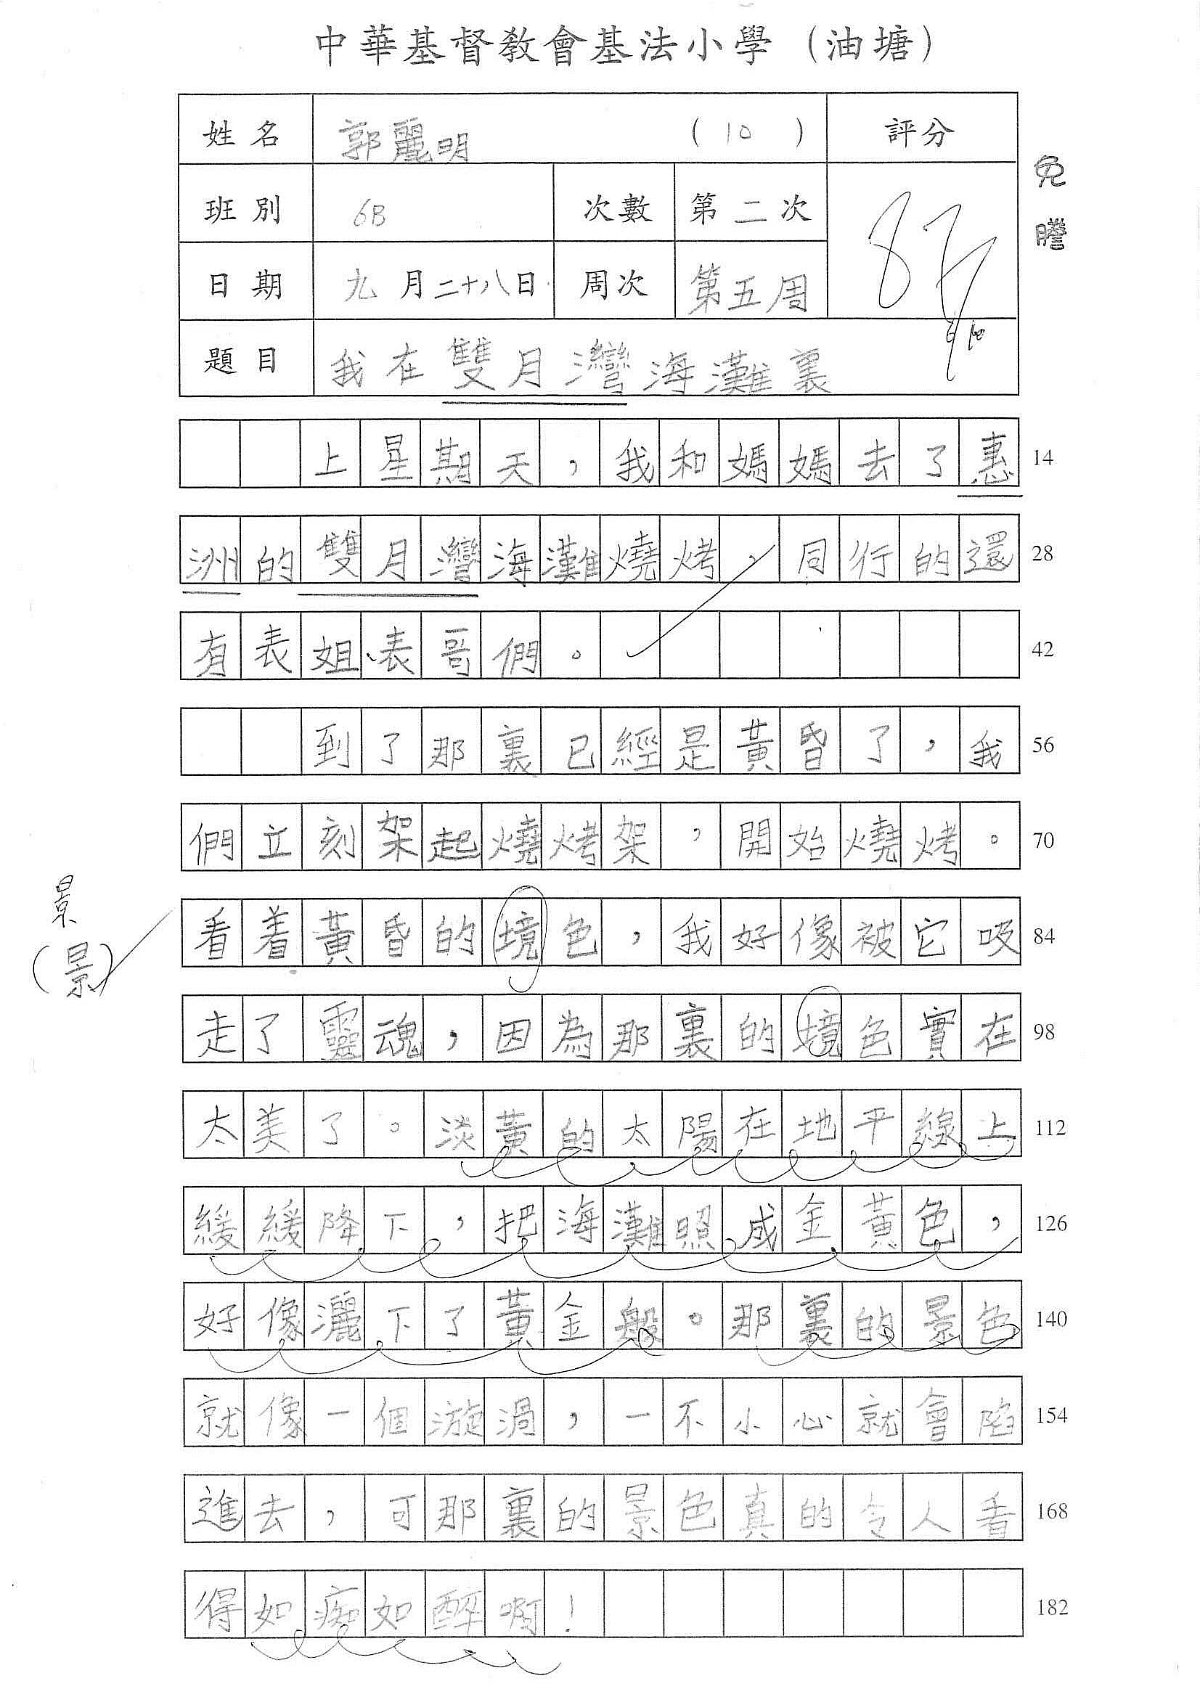 中華基督教會基法小學（油塘）
姓名 郭麗明 （10） 評分
免謄
班別 6B 次數 第二次
87
日期 九月二十八日 周次 第五周
題目 我在雙月灣海灘裏
上星期天，我和媽媽去了惠 14
洲的雙月灣海灘燒烤，同行的還 28
有表姐、表哥們。 42
到了那裏已經是黃昏了，我 56
們立刻架起燒烤架，開始燒烤。 70
景
(景)
看着黃昏的境色，我好像被它吸 84
走了靈魂，因為那裏的境色實在 98
太美了。淡黃的太陽在地平線上 112
緩緩降下，把海灘照成金黃色， 126
好像灑下了黃金般。那裏的景色 140
就像一個漩渦，一不小心就會陷 154
進去，可那裏的景色真的令人看 168
得如痴如醉啊！ 182